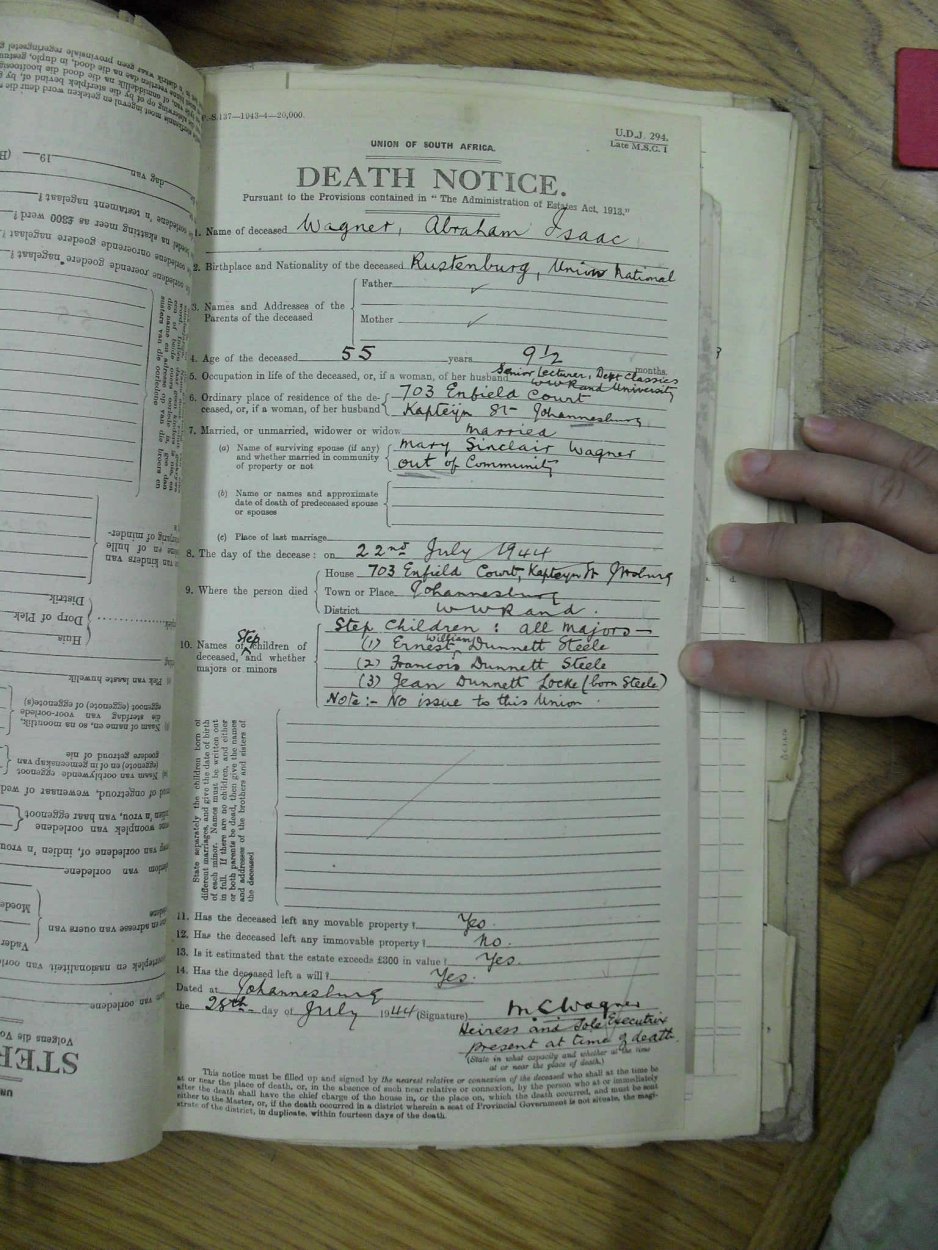 S.137—1943-4—20,000.
U.D.J. 294.
Late M.S.C. 1
UNION OF SOUTH AFRICA.
DEATH NOTICE.
Pursuant to the Provisions contained in "The Administration of Estates Act, 1913."
1. Name of deceased Wagner, Abraham Isaac
2. Birthplace and Nationality of the deceased Rustenburg, Union National
3. Names and Addresses of the Parents of the deceased
Father
Mother
4. Age of the deceased 55 years 9½ months.
5. Occupation in life of the deceased, or, if a woman, of her husband Senior Lecturer, Dept Classics
WWRand University
6. Ordinary place of residence of the de- 703 Enfield Court
ceased, or, if a woman, of her husband Kapteijn St- Johannesburg
7. Married, or unmarried, widower or widow Married
(a) Name of surviving spouse (if any) Mary Sinclair Wagner
and whether married in community out of Community
of property or not
(b) Name or names and approximate
date of death of predeceased spouse
or spouses
(c) Place of last marriage
8. The day of the decease: on 22nd July 1944
9. Where the person died
House 703 Enfield Court, Kapteijn St Jhoburg
Town or Place Johannesburg
District WWRand.
10. Names of Step children of
deceased, and whether
majors or minors
Step Children: all Majors—
(1) Ernest William Dunnett Steele
(2) Francois Dunnett Steele
(3) Jean Dunnett Locke (born Steele)
Note:- No issue to this Union.
State separately the children born of
different marriages, and give the date of birth
of each minor. Names must be written out
in full. If there are no children, and either
or both parents be dead, then give the names
and addresses of the brothers and sisters of
the deceased
11. Has the deceased left any movable property? Yes.
12. Has the deceased left any immovable property? No.
13. Is it estimated that the estate exceeds £300 in value? Yes.
14. Has the deceased left a will? Yes.
Dated at Johannesburg
the 28th day of July 1944 (Signature) M.C Wagner
Heiress and Sole Executrix
present at time of death.
(State in what capacity and whether at the time
at or near the place of death.)
This notice must be filled up and signed by the nearest relative or connexion of the deceased who shall at the time be
at or near the place of death, or, in the absence of such near relative or connexion, by the person who at or immediately
after the death shall have the chief charge of the house in, or the place on, which the death occurred, and must be sent
either to the Master, or, if the death occurred in a district wherein a seat of Provincial Government is not situate, the magi-
strate of the district, in duplicate, within fourteen days of the death.